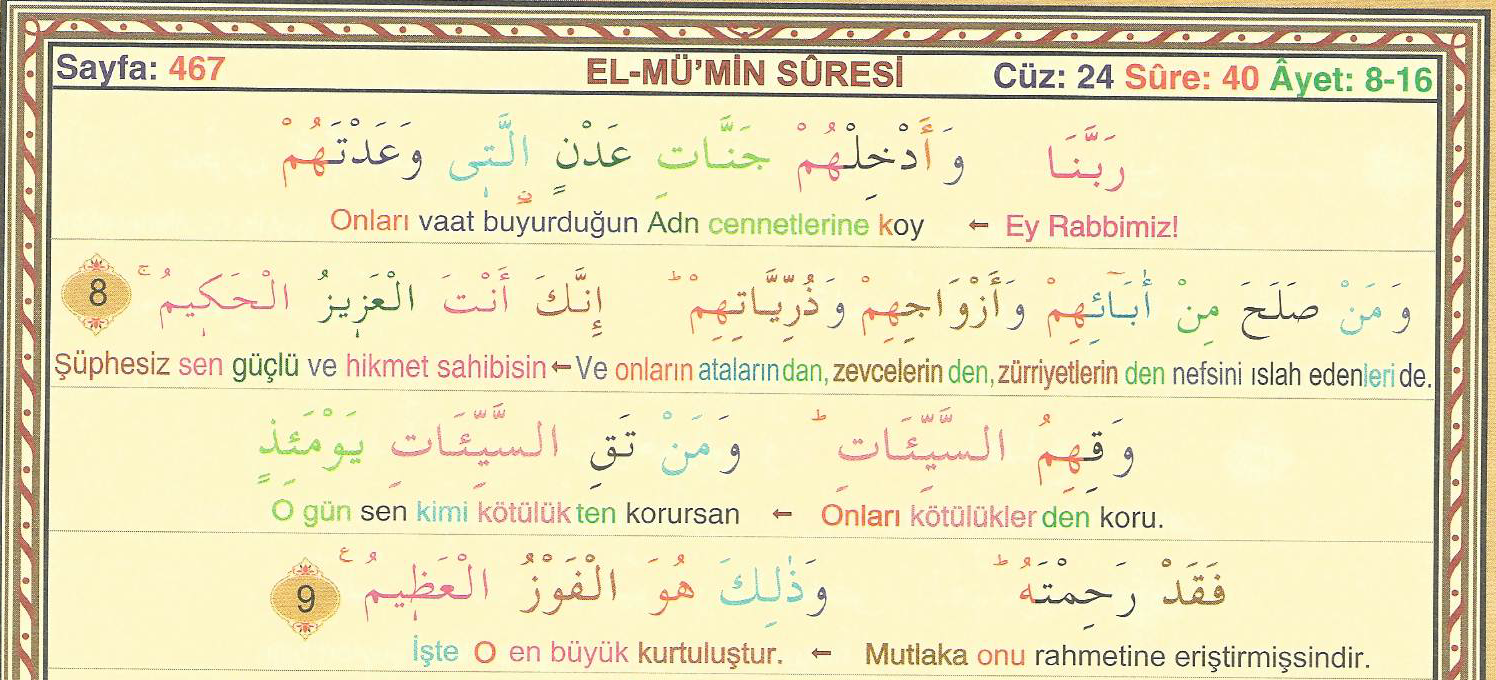 Sayfa: 467 EL-MÜ’MİN SÛRESİ Cüz: 24 Sûre: 40 Âyet: 8-16
رَبَّنَا وَأَدْخِلْهُمْ جَنَّاتِ عَدْنٍ الَّتِى وَعَدْتَهُمْ
Onları vaat buyurduğun Adn cennetlerine koy ← Ey Rabbimiz!
وَمَنْ صَلَحَ مِنْ أٰبَآئِهِمْ وَأَزْوَاجِهِمْ وَذُرِّيَّاتِهِمْ ط إِنَّكَ أَنْتَ الْعَزِيزُ الْحَكِيمُ ج 8
Şüphesiz sen güçlü ve hikmet sahibisin ← Ve onların atalarından, zevcelerin den, zürriyetlerin den nefsini ıslah edenleri de.
وَقِهِمُ السَّيِّئَاتِ ط وَمَنْ تَقِ السَّيِّئَاتِ يَوْمَئِذٍ
O gün sen kimi kötülük ten korursan ← Onları kötülükler den koru.
فَقَدْ رَحِمْتَهُ ط وَذٰلِكَ هُوَ الْفَوْزُ الْعَظِيمُ ع 9
İşte O en büyük kurtuluştur. ← Mutlaka onu rahmetine eriştirmişsindir.